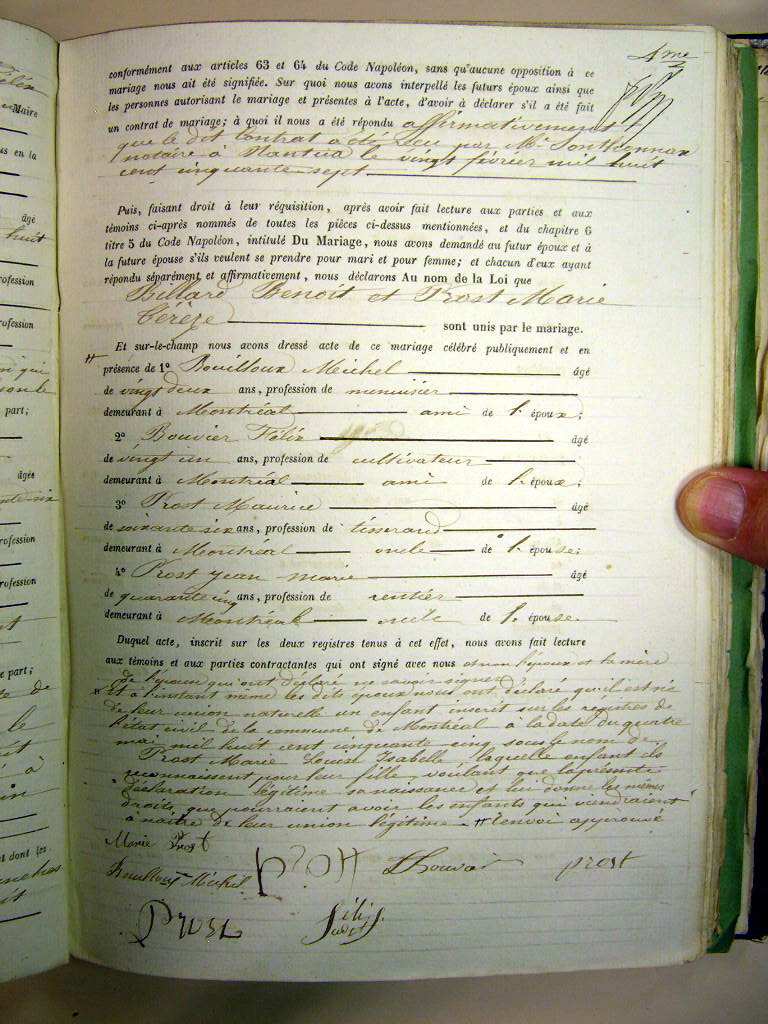 4me
conformément aux articles 63 et 64 du Code Napoléon, sans qu'aucune opposition à ce
mariage nous ait été signifiée. Sur quoi nous avons interpellé les futurs époux ainsi que
les personnes autorisant le mariage et présentes à l'acte, d'avoir à déclarer s'il a été fait
un contrat de mariage; à quoi il nous a été répondu affirmativement
que le dit Contrat a été reçu par Me Sonthonnax
notaire à Nantua le vingt février mil huit
cent cinquante sept
Puis, faisant droit à leur réquisition, après avoir fait lecture aux parties et aux
témoins ci-après nommés de toutes les pièces ci-dessus mentionnées, et du chapitre 6
titre 5 du Code Napoléon, intitulé Du Mariage, nous avons demandé au futur époux et à
la future épouse s'ils veulent se prendre pour mari et pour femme; et chacun d'eux ayant
répondu séparément et affirmativement, nous déclarons Au nom de la Loi que
Billard Benoît et Prost Marie
Téréze sont unis par le mariage.
Et sur-le-champ nous avons dressé acte de ce mariage célébré publiquement et en
présence de 1o Bouilloux Michel âgé
de vingt deux ans, profession de menuisier
demeurant à Montréal ami de l. époux;
2o Bouvier Félix âgé
de vingt un ans, profession de cultivateur
demeurant à Montréal ami de l. époux;
3o Prost Maurice âgé
de soixante six ans, profession de tisserand
demeurant à Montréal oncle de l. épouse;
4o Prost jean marie âgé
de quarante cinq ans, profession de rentier
demeurant à Montréal oncle de l. épouse.
Duquel acte, inscrit sur les deux registres tenus à cet effet, nous avons fait lecture
aux témoins et aux parties contractantes qui ont signé avec nous et non l'époux et la mère
de l'époux qui ont déclaré ne savoir signer
Et à l'instant même les dits époux nous ont déclaré qu'il est né
de leur union naturelle un enfant inscrit sur les registres de
l'état civil de la commune de Montréal à la date du quatre
mai mil huit cent cinquante cinq sous le nom de
Prost Marie Louise Isabelle, laquelle enfant ils
reconnaissent pour leur fille voulant que la présente
déclaration légitime sa naissance et lui donne les mêmes
droits que pourraient avoir les enfants qui viendraient
à naître de leur union légitime. renvoi approuvé
Marie Prost
Bouilloux Michel Prost prost
Prost
Maire
us en la
âgé
huit
rofession
rofession
part;
âgés
rofession
rofession
e part;
et dont les